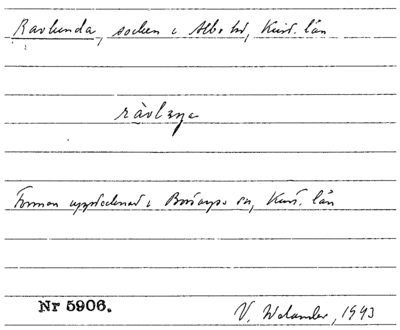 Ravlunda, socken i Albo hd, Krist. län
Formen upptecknad i Borrby sn, Krist. län
Nr 5906.
V. Welander, 1943